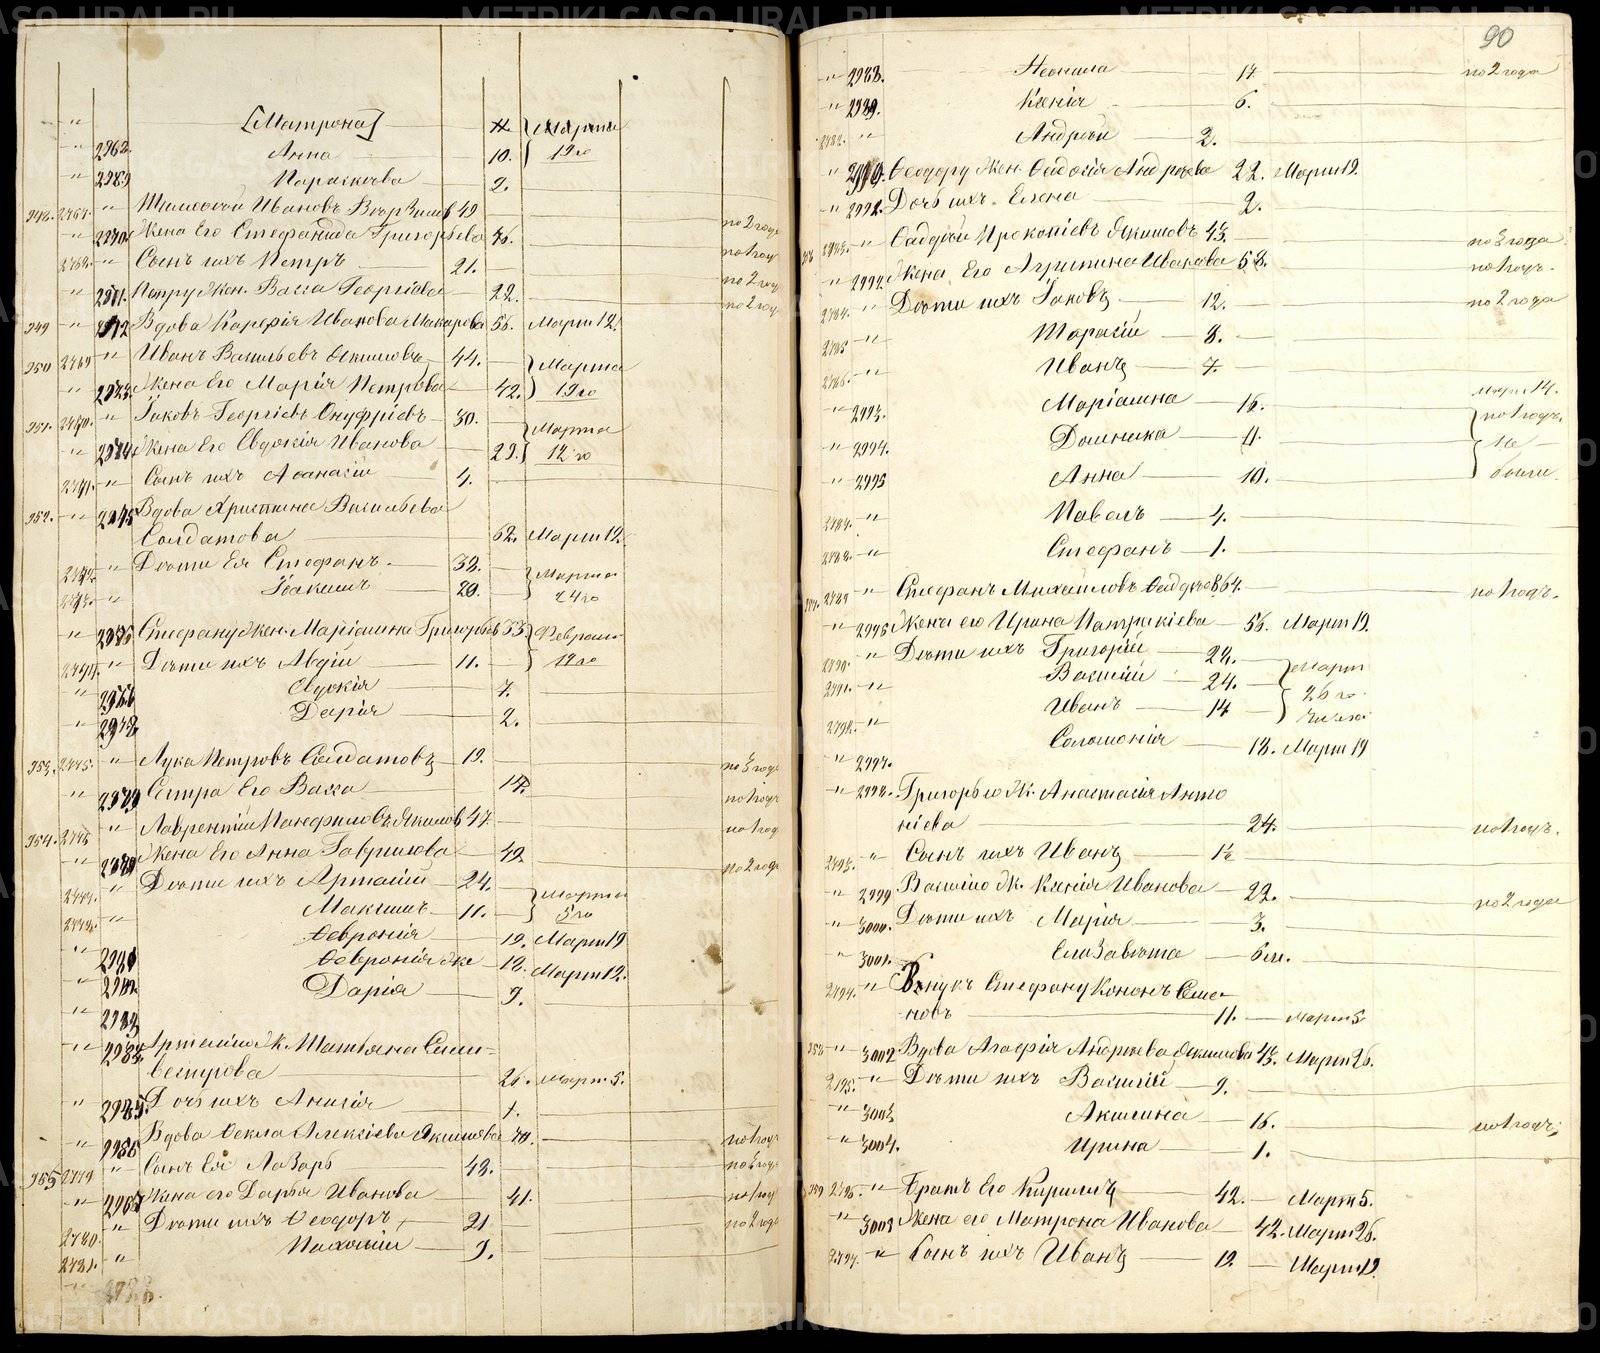 [Матрона] Марта
2968. Анна 10. 12го
2969 Параскева 2.
948. 2767. Тимофей Ивановъ 49
2970. Жена Его Стефанида Григорьева 46. по 2 года
2768. Сынъ ихъ Петръ 21. по 1 году
2971. Петру Жен. Васса Георгіева 22. по 2 года
949 2972 Вдова Карефія Иванова Макарова 56. Март 12.
950 2769 Иванъ Васильевъ Якимовъ 44. Марта
2973. Жена Его Марія Петрова 42. 12го
951. 2770. Іаковъ Георгіевъ Онуфріевъ 30. Марта
2974. Жена Его Евдокія Иванова 29. 12го
2771. Сынъ ихъ Аѳанасій 4.
952. 2975 Вдова Христина Васильева
Солдатова 62. Март 12.
2772. Дѣти Ея Стефанъ 38. Марта
2773. Іоакимъ 20. 24го
2976 Стефану Жен. Маріамна Григорьев 33 Феврал.
2774. Дѣти ихъ Авдій 11. 12го
Евдокія 7.
2978 Дарія 2.
953. 2775. Лука Петровъ Солдатовъ 19. по 3 года
2979 Сестра Его Васса 17. по 1 году
954. 2776 Лаврентій Панфиловъ Якимов 47. по 1 год
2980 Жена Его Анна Гаврилова 49. по 2 года
2777. Дѣти ихъ Артемій 24. Марта
2778. Максимъ 11. 5го
Ѳевронія 19. Март 19
2981 Ѳевронія же 18. Март 12.
2982. Дарія 9.
2983
2984. Артемію Ж. Татьяна Сели-
вестрова 26. Март 5.
2985. Дочь ихъ Анисія 1.
2986 Вдова Ѳекла Алексіева Якимова 70. по 1 году
955 2779 Сынъ Ея Лазарь 48. по 3 года
2987 Жена его Дарья Иванова 41. по 1 году
2780. Дѣти ихъ Ѳеодоръ 21 по 2 года
2781. Пахомій 9.
90
2988. Неонила 17. по 2 года
2989. Ксенія 6.
2782. Андрей 2.
2990. Ѳеодору Жен. Ѳеодосія Андреева 22. Март 19.
2991. Дочь ихъ Елена 2.
2783. Ѳаддей Прокопіевъ Якимовъ 43. по 3 года
2992. Жена Его Агрипина Иванова 58. по 1 году.
2784. Дѣти ихъ Іаковъ 12. по 2 года
2785 Тарасій 8.
2786. Иванъ 7
2993. Маріамна 16. март 14.
2994. Домника 11. по 1 году,
2995 Анна 10. не были.
2787. Павелъ 4.
2788. Стефанъ 1.
2789 Стефанъ Михаиловъ Ѳаддѣев 64. по 1 году.
2996 Жена его Ирина Патрикіева 56. Март 19.
2790. Дѣти ихъ Григорій 24. Март
2791. Василій 24. 26го
2792. Иванъ 14
2997. Соломонія 18. Март 19
2998. Григорью Ж. Анастасія Анто
ніева 24. по 1 году.
2793. Сынъ ихъ Иванъ
2999 Василію Ж. Ксенія Иванова 22. по 2 года
3000. Дѣти ихъ Марія 3.
3001. Елизавета 6 м.
2794. Внукъ Стефану Кононъ Семе-
новъ 11. Март 5
958 3002 Вдова Агафія Андреева Якимова 43. Март 26.
2795. Дѣти ихъ Василій 9.
3003 Акилина 16. по 1 году;
3004. Ирина 1.
959 2796. Братъ Его Кириллъ 42. Март 5.
Жена его Матрона Иванова 42. Март 26.
2797. Сынъ ихъ Иванъ 19. Март 19.